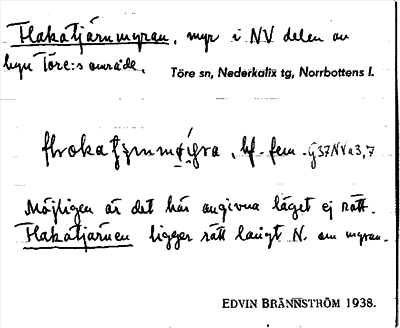 Flakatjärnmyran, myr i NV delen av
byn Töre:s område.
Töre sn, Nederkalix tg, Norrbottens l.
bf. fem. GS7NVa3,7
Möjligen är det här angivna läget ej rätt.
Flakatjärnen ligger rätt långt N. om myran.
EDVIN BRÄNNSTRÖM 1938.